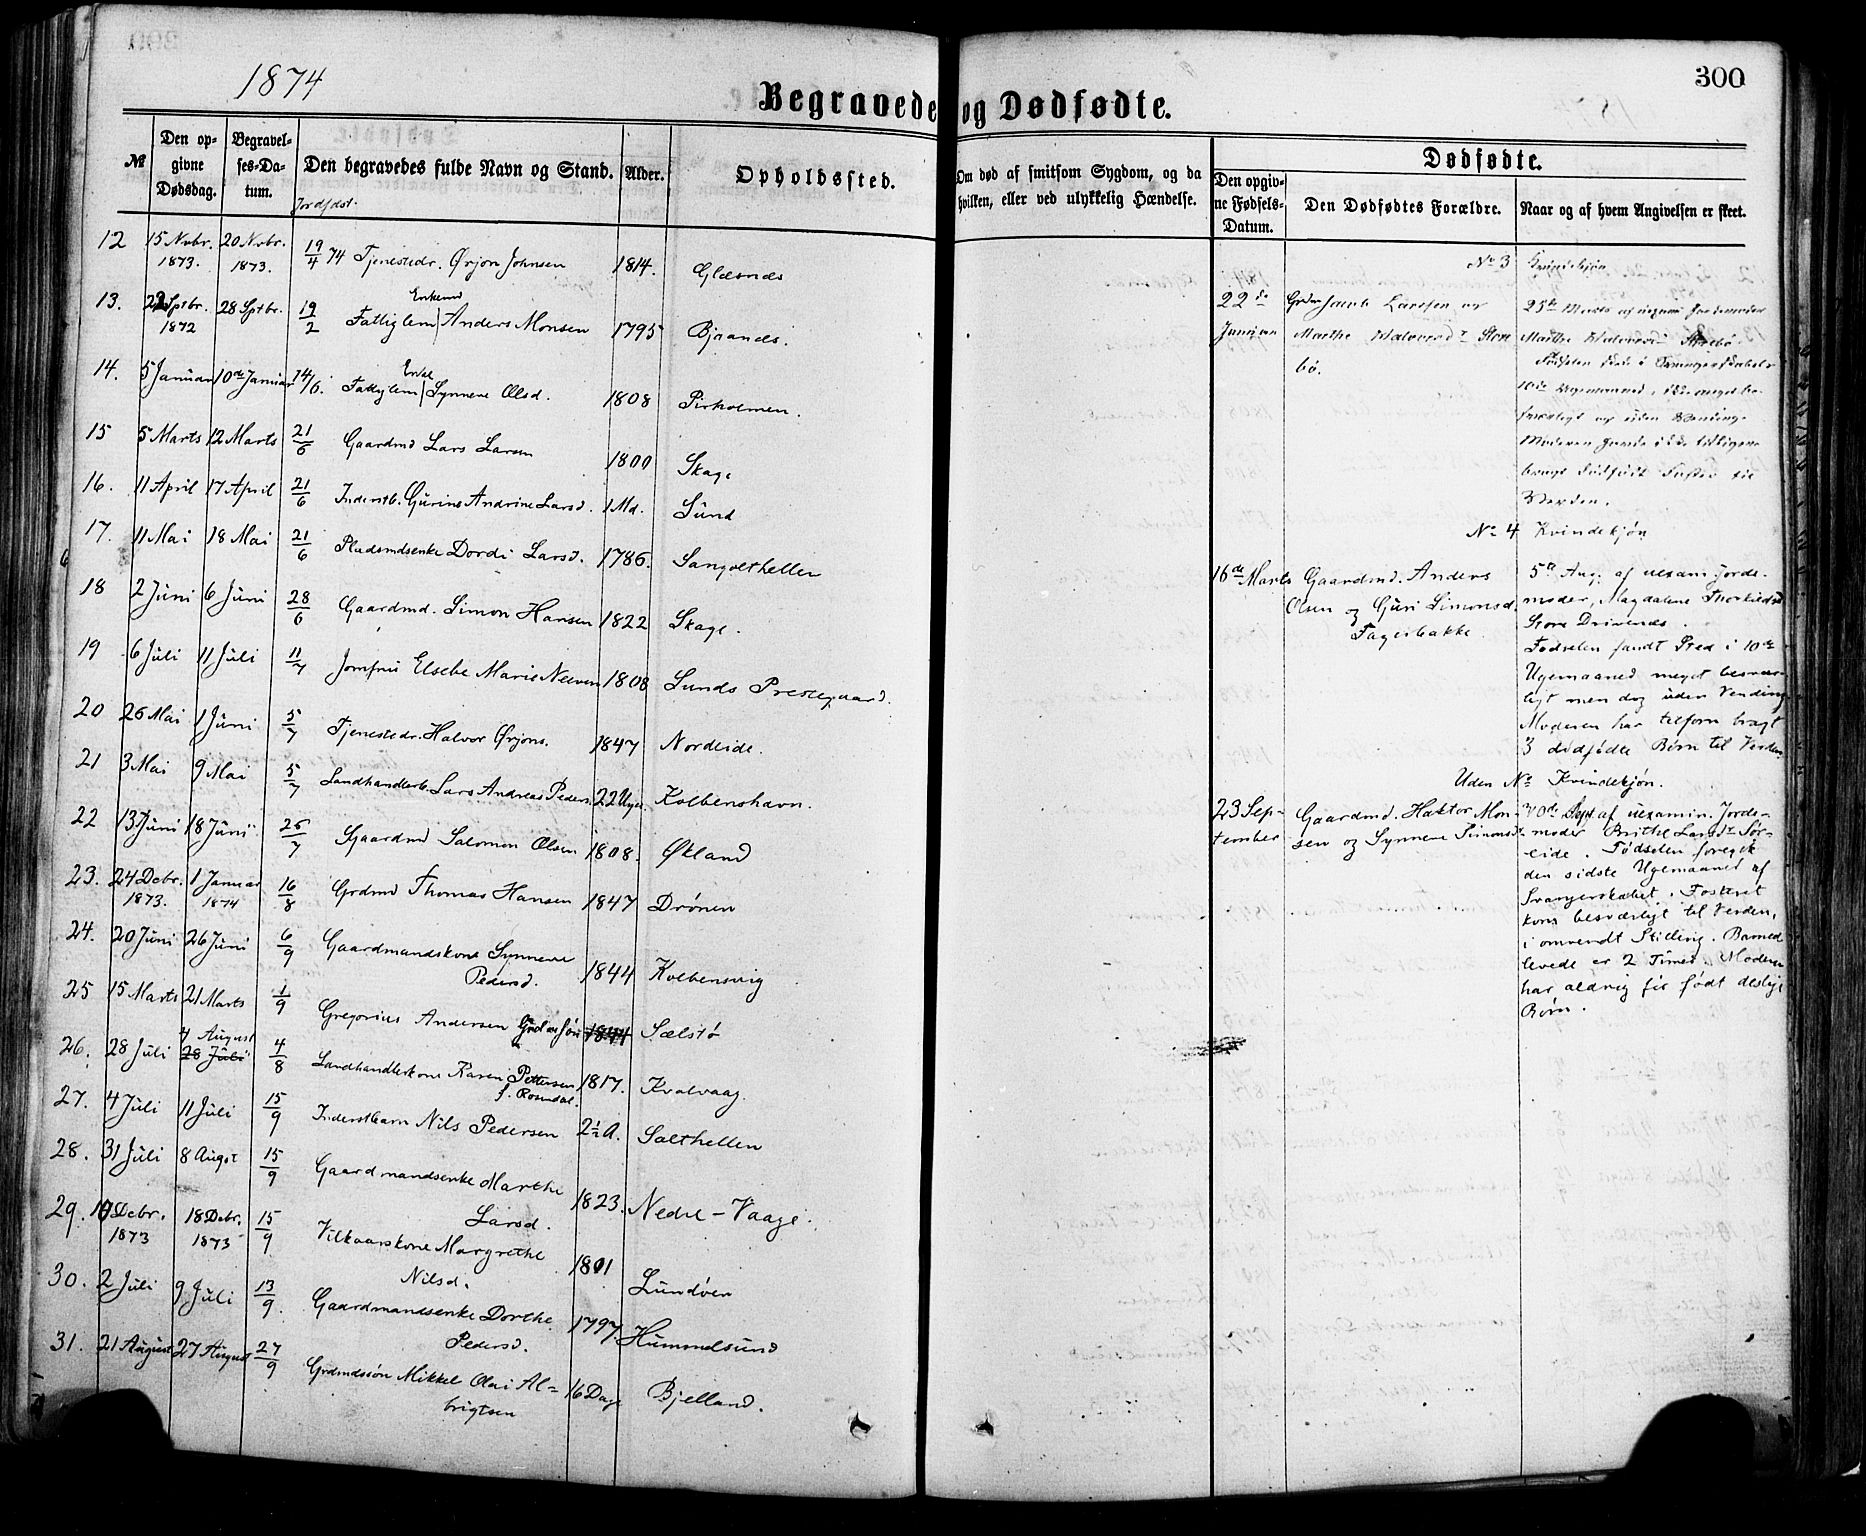 300
1874
Begravede og Dødfødte.
№
Den op-
givne
Dødsdag.
Begravel-
ses-Da-
tum.
Den begravedes fulde Navn og Stand.
Jordfdst.
Alder.
Opholdssted.
Om død af smitsom Sygdom, og da
hvilken, eller ved ulykkelig Hændelse.
Dødfødte.
Den opgiv-
ne Fødsels-
Datum.
Den Dødfødtes Forældre.
Naar og af hvem Angivelsen er skeet.
12 15 Nvbr. 1873. 20 Nvbr. 1873. 19/4 74 Tjenestedr. Ørjon Johnsen 1814. Glæsnæs
13. 22 Sptbr. 1872 28 Sptbr. 19/2 Fattiglem Enkemd Anders Monsen 1795 Bjaanæs.
14. 5 Januar 10de Januar 14/6. Fattiglem Enke Synneve Olsd. 1808 Pirholmen.
15 5 Marts 12 Marts 21/6 Gaardmd Lars Larsen 1800 Skage
16. 11 April 17 April 21/6 Inderstb. Gurine Andrine Larsd. 1 Md. Sund
17. 11 Mai 18 Mai 21/6 Pladsmdsenke Dordi Larsd. 1786. Sangolthellen
18 2 Juni 6 Juni 28/6 Gaardmd. Simon Hansen 1822 Skage.
19 6 Juli 11 Juli 11/7 Jomfru Elsebe Marie Neeven 1808 Sunds Prestegaard.
20 26 Mai 1 Juni 5/7 Tjenestedr. Halvor Ørjons. 1847 Nordeide.
21 3 Mai 9 Mai 5/7 Landhandlerb. Lars Andreas Peders. 22 Uger Kolbenshavn.
22 13 Juni 18 Juni 26/7 Gaardmd Salomon Olsen 1808. Økland
23. 24 Debr. 1873. 1 Januar 1874 16/8 Grdmd Thomas Hansen 1847 Drönen
24. 20 Juni 26 Juni 6/9 Gaardmandskone Synneve
Pedersd. 1844 Kolbensvig
25 15 Marts 21 Marts 1/9 Gregorius Andersen 1844 Sælstø
26. 28 Juli 4 August 28 Juli 4/8 Landhandlerkone Karen Pettersen
f. Rosendal. 1817. Kvalvaag.
27. 4 Juli 11 Juli 15/9 Inderstbarn Nils Pedersen 2½ A. Salthellen
28. 31 Juli 8 Augst 15/9 Gaardmandsenke Marthe
Larsd. 1823. Nedre-Vaage.
29. 10 Debr. 1873 18 Debr. 1873 15/9 Vilkaarskone Margrethe
Nilsd. 1801 Lundöen
30. 2 Juli 9 Juli 13/9. Gaardmandsenke Dorthe
Pedersd. 1797. Hummelsund
31. 21 August 27 August 27/9 Grdmdssön Mikkel Olai Al-
brigtsen 16 Dage Bjelland.
No 3 Kvindekjøn
22de
Januar
Grdm Jacob Larsen og
Marthe Halvorsdr Store
bö.
25de Marts af
Marthe
10de Ugemaaned,
og uden Vending.
til
Verden.
No 4 Kvindekjøn
16de Marts
Gaardmd. Anders
Olsen og Guri Simonsd.
Fagerbakke
5te Aug. af uexam. Jorde-
moder, Magdalene Thorkildsd
Store Drivenæs.
Fødselen fandt Sted i 10de
Ugemaaned meget besvær-
ligt men dog uden Vending
Moderen har tilforn bragt
3 dødfødte Børn til Verden
Uden No Kvindekjøn.
23 Sep-
tember
Gaardmd. Haktor Mon-
sen og Synneve Simonsd
30de Sept. af uexamin. Jorde-
moder Brithe Larsdr Sør-
eide. Fødselen foregik
den sidste Ugemaaned af
Svangerskabet. Fosteret
kom besværligt til Verden,
i omvendt Stilling. Barnet
levede er 2 Timer. Moderen
har aldrig før født deslige
Børn.